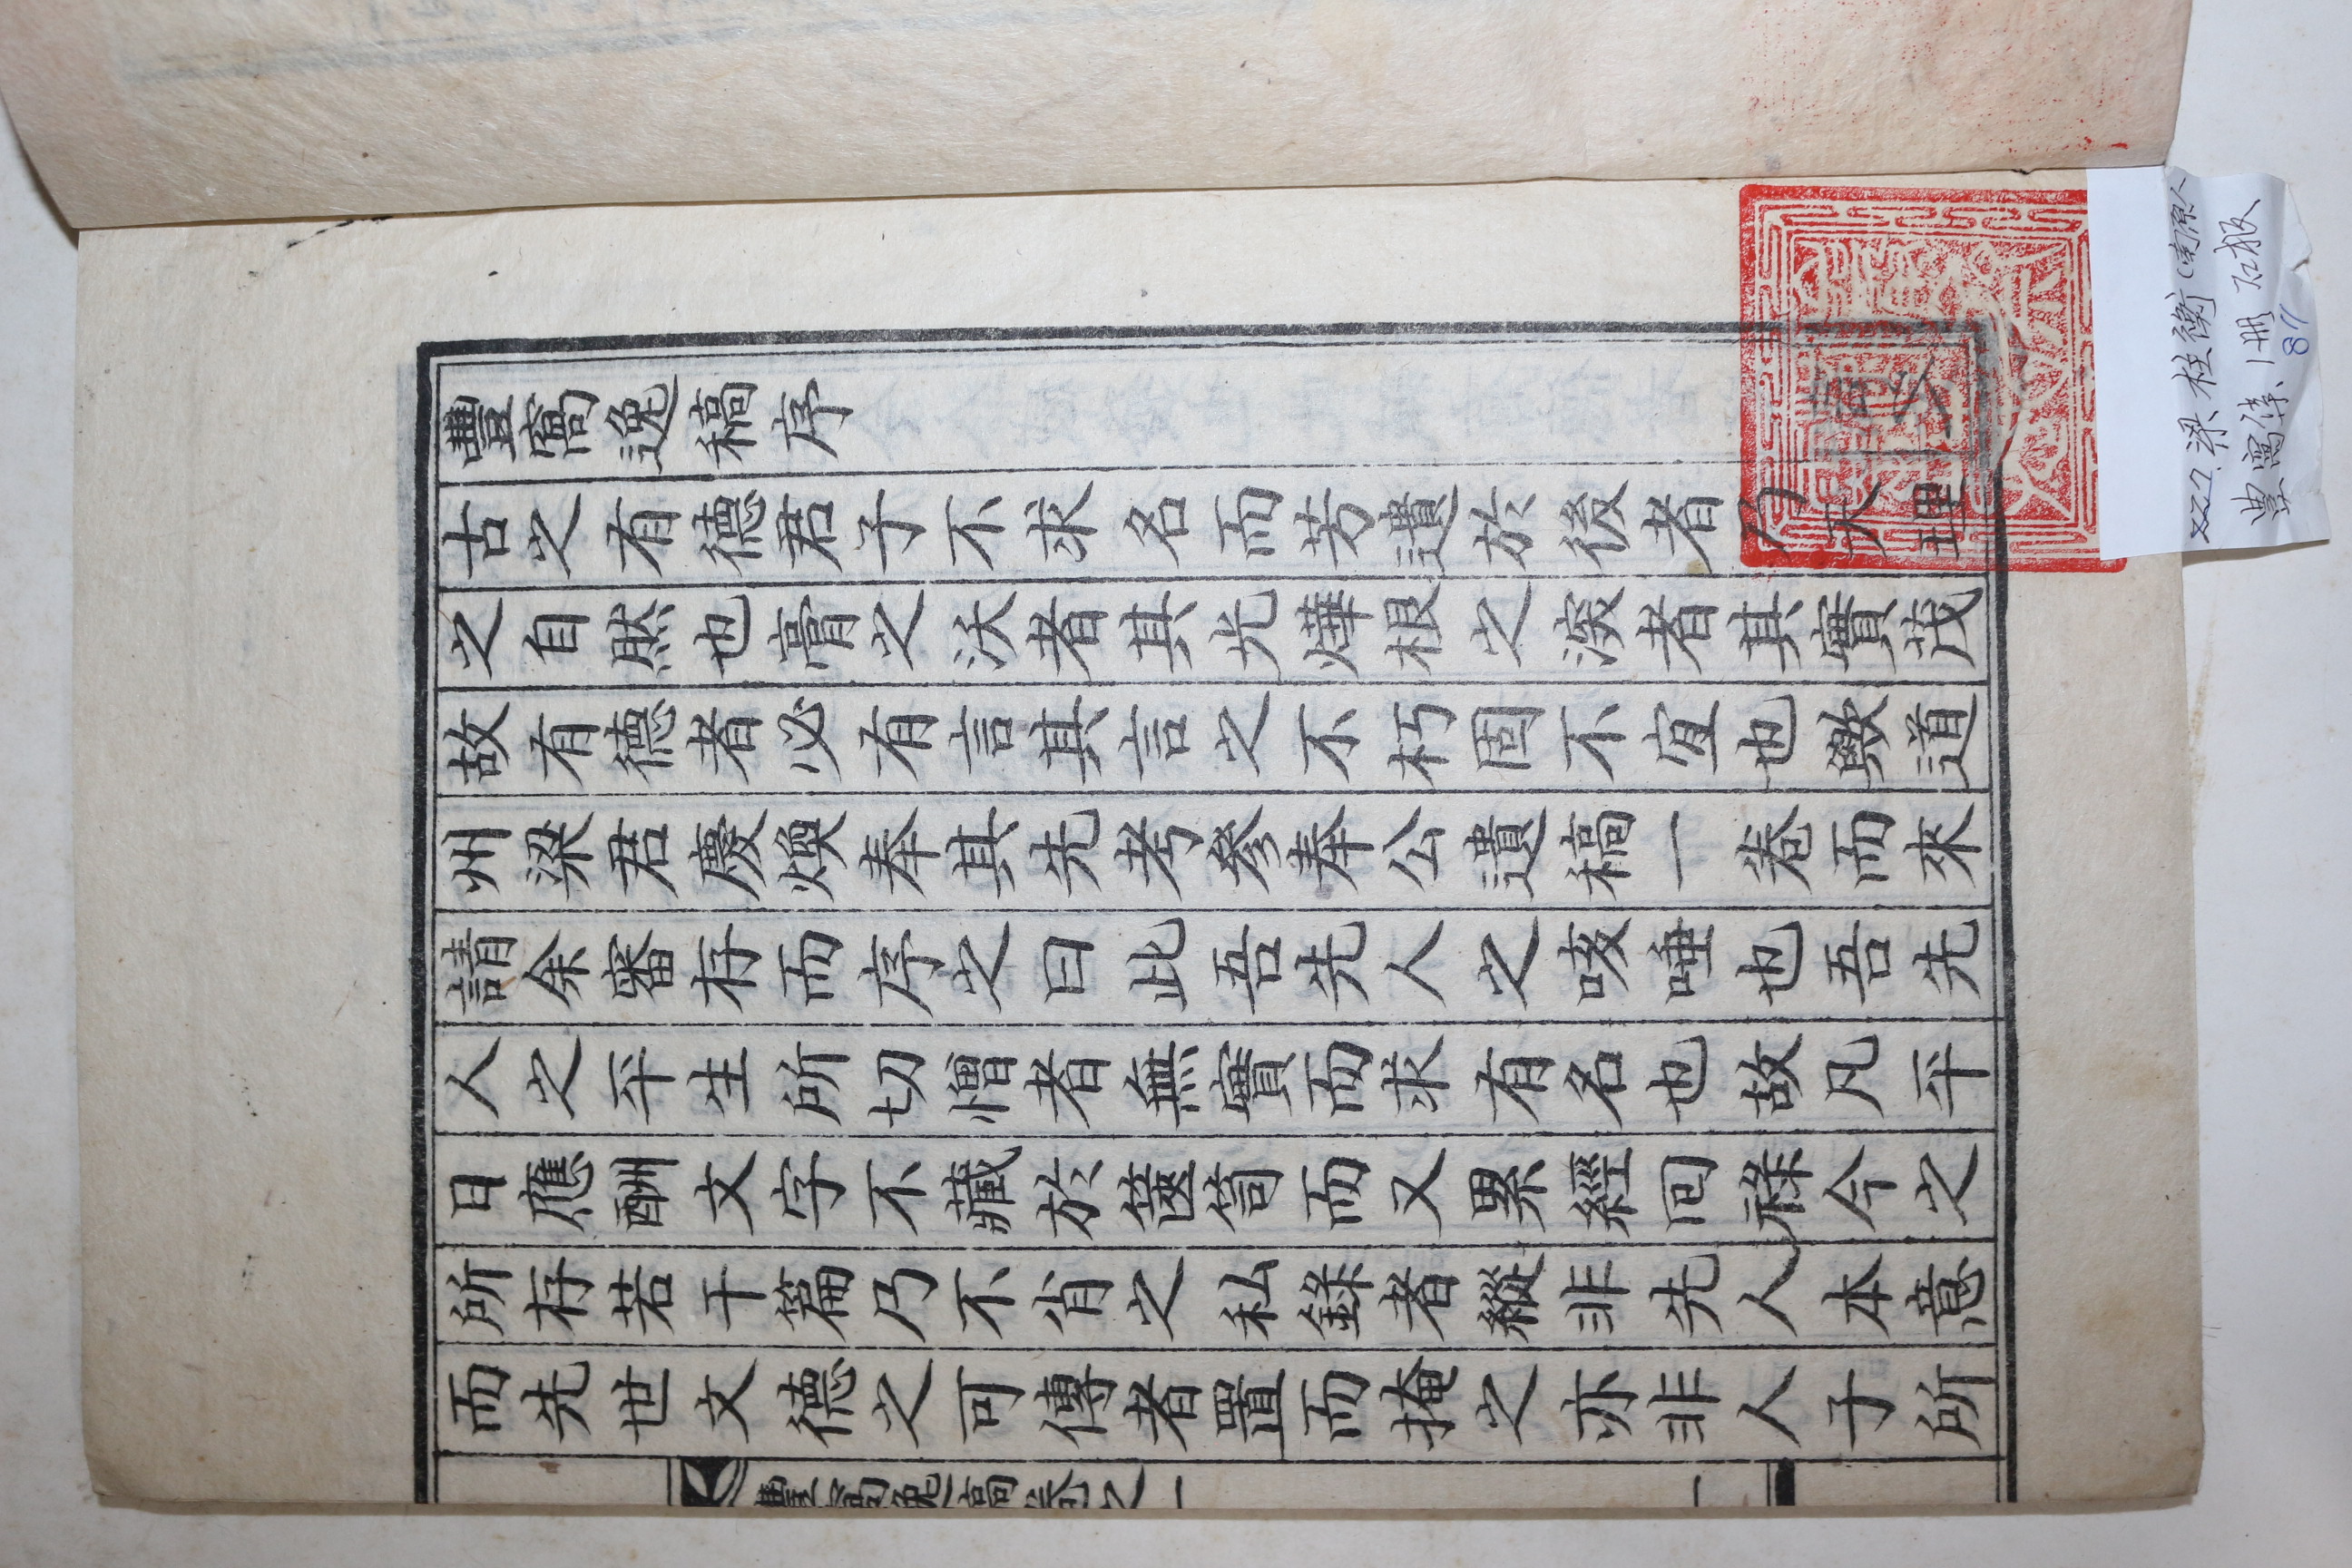 豐窩逸稿序
古之有德君子不求名而芳遺於後者乃天理
之自然也膏之沃者其光燁根之深者其實茂
故有德者必有言其言之不朽固不宜也歟道
州梁君慶煥奉其先考參奉公遺稿一卷而來
請余審存而序之曰此吾先人之咳唾也吾先
人之平生所切憎者無實而求有名也故凡平
日應酬文字不藏於篋笥而又累經回祿今之
所存若干篇乃不肖之私錄者縱非先人本意
而先世文德之可傳者置而掩之亦非人子所
豐窩逸稿卷之一
一
227. 梁柱衡 (南原人
豊窩集 1冊 石板
87